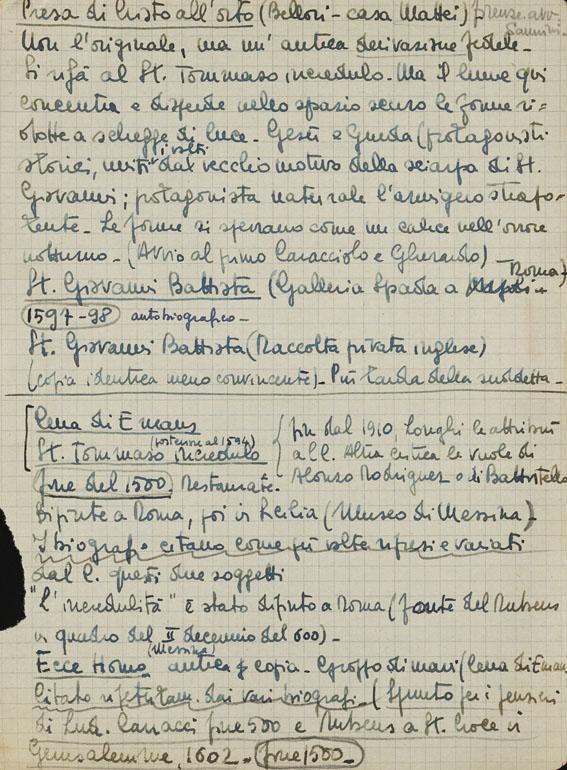 Presa di Cristo all'orto (Belloni - casa Mattei)
Non l'originale, ma un' antica derivazione fedele -
Si rifà al St. Tommaso incredulo. Ma il lume qui
concentra e disperde nello spazio scuro le forme ri=
dotte a schegge di luce - Gesù e Giuda (protagonisti
storici, uniti i volti dal vecchio motivo della sciarpa di St.
Giovanni; protagonista naturale l'armigero strapo-
tente - Le forme si serrano come un calice nell'orrore
notturno - (Avvio al primo Caracciolo e Gherardo)
St. Giovanni Battista (Galleria Spada a Roma)
1597-98 autobiografico -
St. Giovanni Battista (Raccolta privata inglese)
(copia identica meno convincente) - Più tarda della suddetta -
Cena di Emaus
St. Tommaso incredulo (posteriore al 1594)
fin dal 1910, Longhi le attribuì
a C. Altra critica le vuole di
Alonso Rodriguez o di Battistello
fine del 1500. Restaurate.
Dipinte a Roma, poi in Sicilia (Museo di Messina)
I biografi citano come più volte ripresi e variati
dal C. questi due soggetti
"L'incredulità" è stato dipinto a Roma (fonte del Rubens
in quadro del II decennio del 600) -
Ecce Homo (Messina) antica copia - Groppo di mani (Cena di Emaus
Citato ripetutam. dai vari biografi - (Spunto per i pensieri
di Lud. Carracci fine 500 e Rubens a St. Croce in
Gerusalemme, 1602 - fine 1500 -